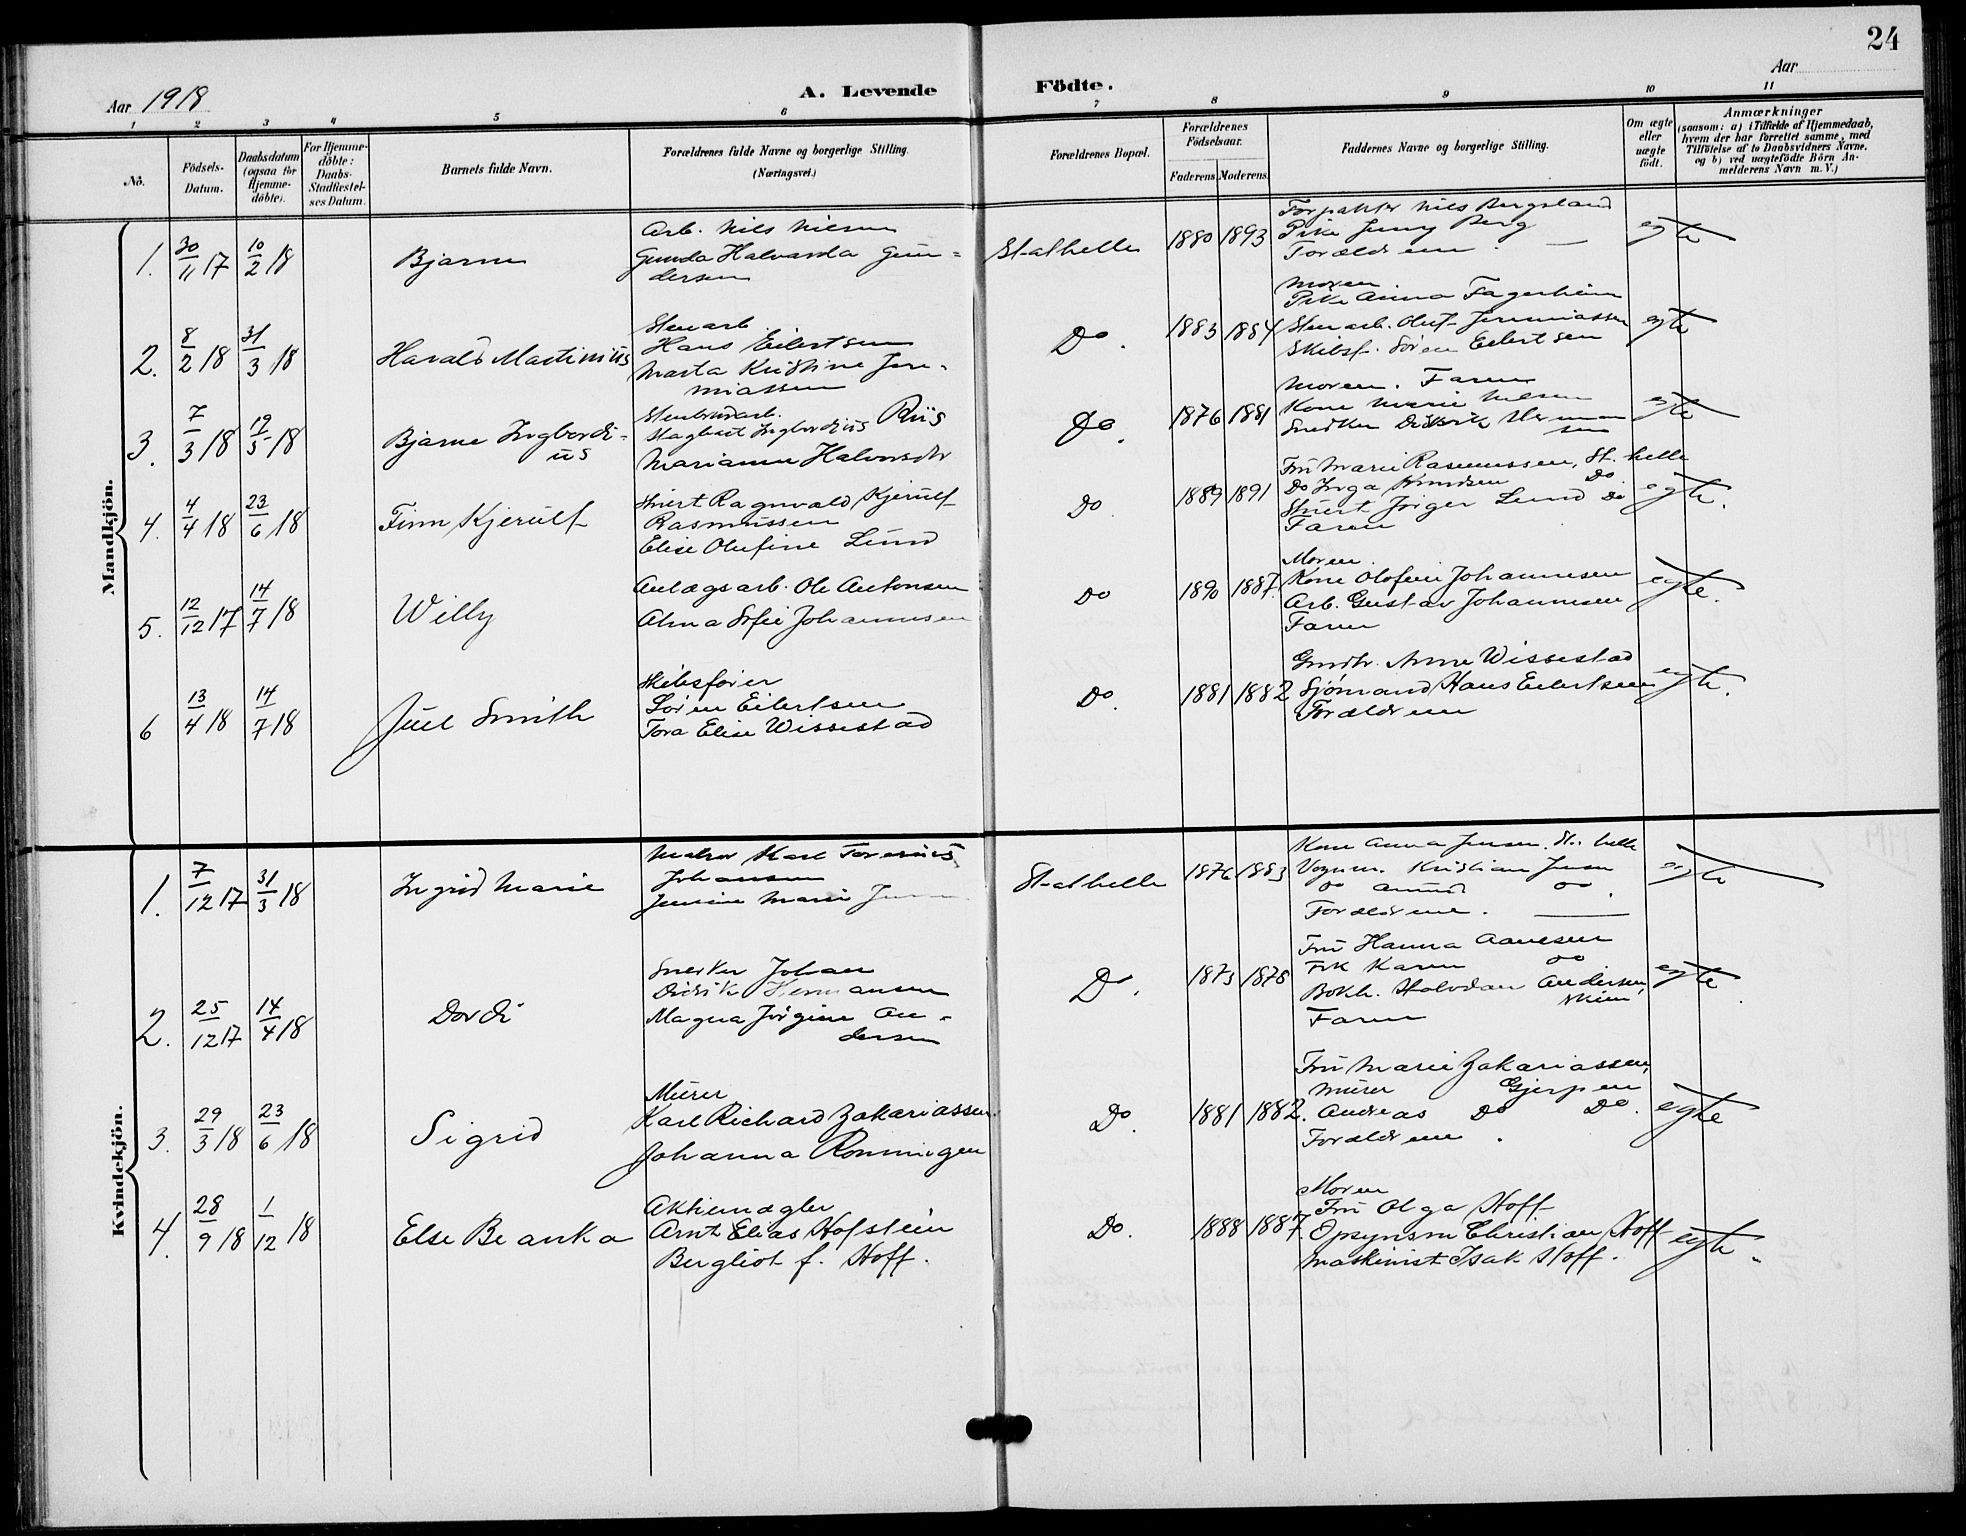 24
Aar 1918
A. Levende Födte.
Aar
1 2 3 4 5 6 7 8 9 10 11
No.
Födsels-Datum.
Daabsdatum (ogsaa for Hjemme-döbte).
For Hjemme-döbte: Daabs-Stadfæstel-ses Datum.
Barnets fulde Navn.
Forældrenes fulde Navne og borgerlige Stilling.
(Næringsvei.)
Forældrenes Bopæl.
Forældrenes Födselsaar.
Faderens. Moderens.
Faddernes Navne og borgerlige Stilling.
Om ægte eller uægte födt.
Anmærkninger
(saasom: a) i Tilfælde af Hjemmedaab,
hvem der har forrettet samme, med
Tilföielse af to Daabsvidners Navne,
og b) ved uægtefödte Börn An-
melderens Navn m. V.)
Mandkjön.
1. 30/11 17 10/2 18 Bjarne
Arb. Nils Nilsen
Gunda Halvarda Gun-
dersen
Stathelle 1880 1893
Forpakter Nils Bergsland
Pike Jenny Berg
Forældrene. —
egte
2. 8/2 18 31/3 18 Harald Martinius
Stenarb.
Hans Eilertsen
Marta Kristine Jere-
miassen
Do. 1883 1884
Moren
Pike Anna Fagerheim
Stenarb. Oluf Jeremiassen
Skibsf. Sören Eilertsen
egte
3. 7/3 18 19/5 18 Bjarne Ingbordi-
us
Ingbordius Riis
Marianne Halvorsdr
Do. 1876 1881
Moren. Faren
Kone Marie Nilsen
Snedker Didrik Herman
sen
egte
4. 4/4 18 23/6 18 Finn Kjerulf
Stuert Ragnvald Kjerulf
Rasmussen
Elise Olufine Lund
Do. 1889 1891
Fru Marie Rasmussen, St. helle
Do Inga Do.
Stuert Jörgen Lund Do
Faren
egte.
5. 12/12 17 14/7 18 Willy
Anlægsarb. Ole Antonsen
Alma Sofie Johannesen
Do 1890 1887.
Moren.
Kone Olofine Johannesen
Arb. Gustav Johannesen
Faren
egte.
6 13/4 18 14/7 18 Juel Smith
Skibsförer
Sören Eilertsen
Tora Elise Wissestad
Do. 1881 1882
Gmdbr. Anne Wissestad
Sjömand Hans Eilertsen
Forældrene
egte.
Kvindekjön.
1. 7/12 17 31/3 18 Ingrid Marie
Karl
Johansen
Marie
Stathelle 1876 1883
Kone Anna Jensen, St. helle
Vognm. Kristian Jensen
Do Do.
Forældrene. —
egte
2. 25/12 17 14/4 18 Dordi
Snedker Johan
Didrik Hermansen
Magna Jörgine An-
dersen
Do. 1873 1878
Fru Hanna Aanesen
Frk Karen Do
Bokh. Halvdan Andersen,
Skien
Faren
egte
3. 29/3 18 23/6 18 Sigrid
Murer
Karl Richard Zakariassen.
Johanna Ronningen
Do. 1881 1882.
Fru Marie Zakariassen,
Murer Gjerpen
Andreas Do Do.
Forældrene.
egte
4. 28/9 18 1/12 18 Else Beanka
Aktiemægler
Arnt Elias Hofstein
Bergliot f. Hoff.
Do. 1888 1887.
Moren
Fru Olga Hoff
Opsynsm Christian Hoff
Maskinist Isak Hoff.
egte.